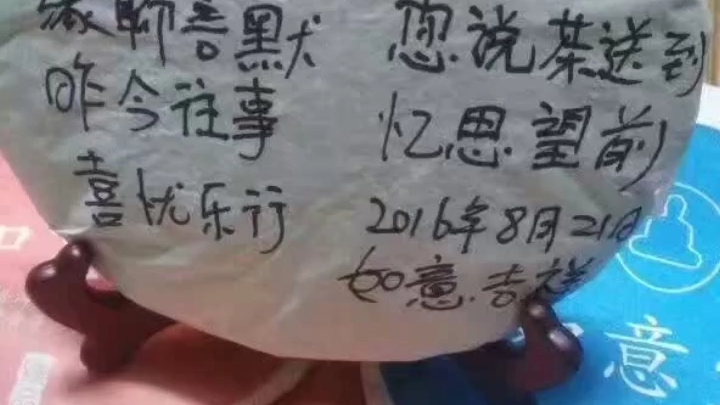 聊言默 您说茶送到
昨今往事 忆思望前
喜忧乐行 2016年8月21日
如意.吉祥
意